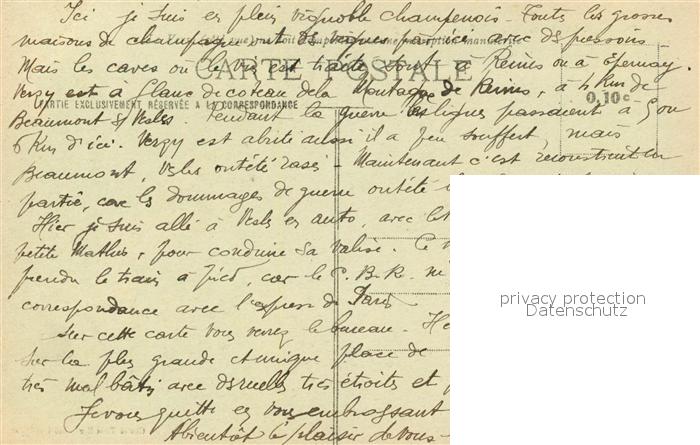 Ici je suis en plein vignoble champenois. Toutes les grosses
maisons de champagne ont des vignes par ici avec des pressoirs
Mais les caves où le vin est traité sont à Reims ou à Epernay.
CARTE POSTALE
Verzy est à flanc de coteau de la Montagne de Reims, à 4 Km de
PARTIE EXCLUSIVEMENT RÉSERVÉE A LA CORRESPONDANCE
0,10c
Beaumont s/ Vesles. Pendant la guerre les lignes passaient à 5 ou
6 Km d'ici. Verzy est abrité aussi il a peu souffert, mais
Beaumont, Vesles ont été rasés - Maintenant c'est reconstruit en
partie, car les dommages de guerre ont été
Hier je suis allé à Vesles en auto, avec
petite Mathis, pour conduire sa valise. Ce
prendre le train à pied, car le C. B. R. n'
correspondance avec l'express de Paris
Sur cette carte vous verrez le bureau -
sur la plus grande et unique place de
très mal bâti avec des ruelles très étroites et
Je vous quitte en vous embrassant
A bientôt le plaisir de vous
privacy protection
Datenschutz